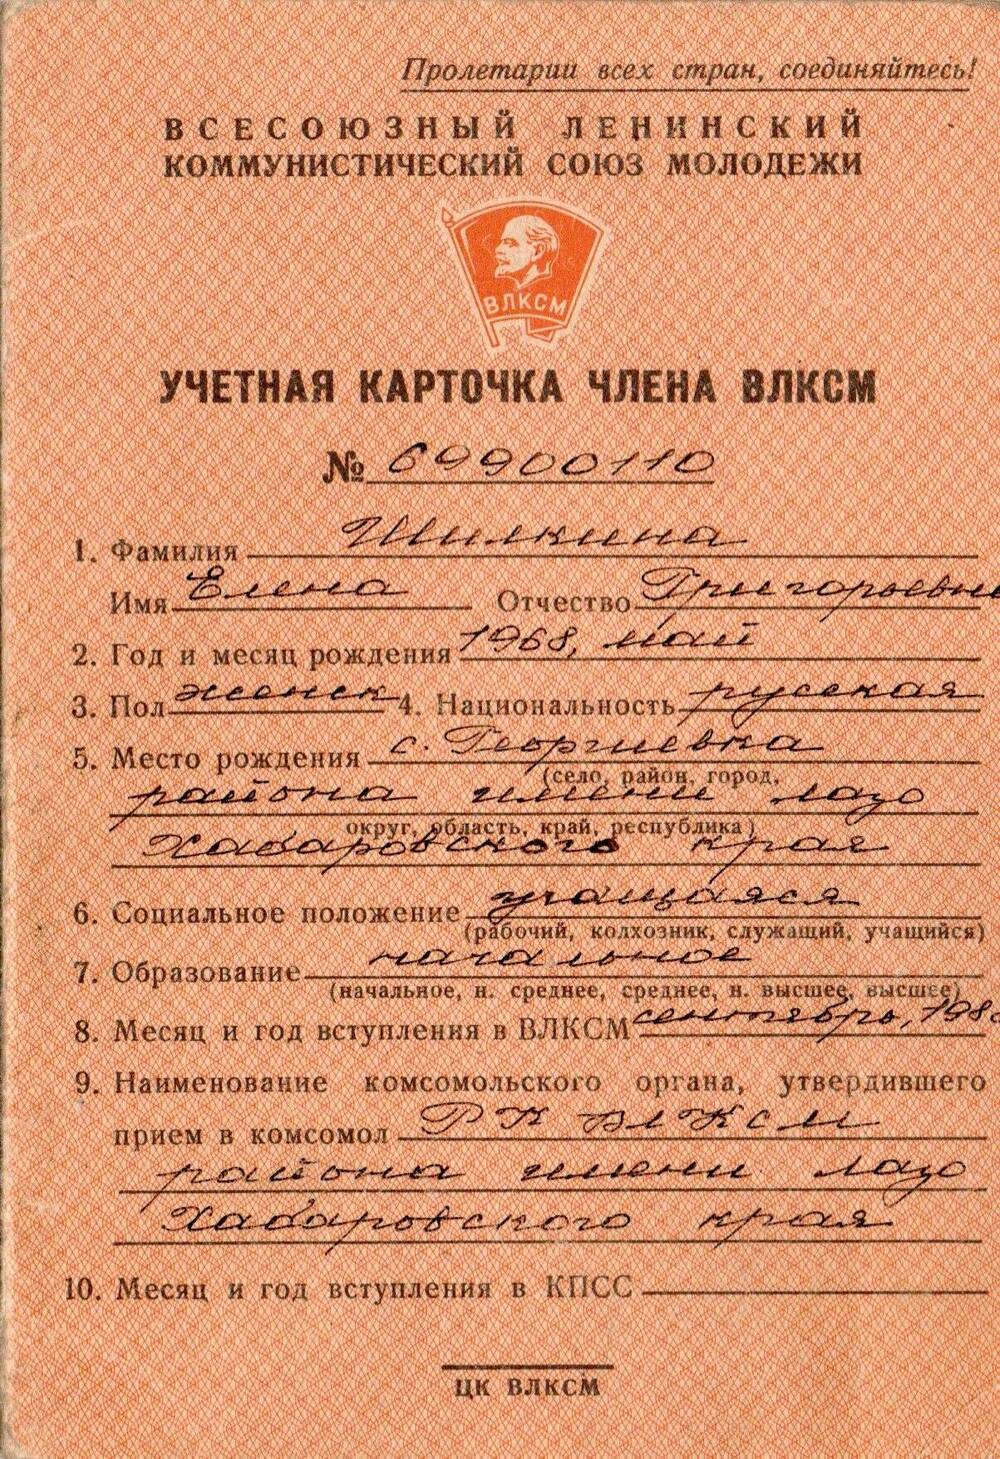 Пролетарии всех стран, соединяйтесь!
ВСЕСОЮЗНЫЙ ЛЕНИНСКИЙ
КОММУНИСТИЧЕСКИЙ СОЮЗ МОЛОДЕЖИ
ВЛКСМ
УЧЕТНАЯ КАРТОЧКА ЧЛЕНА ВЛКСМ
№ 69900110
1. Фамилия Шилкина
Имя Елена Отчество Григорьевна
2. Год и месяц рождения 1968, май
3. Пол женск 4. Национальность русская
5. Место рождения с. Георгиевка
(село, район, город,
района имени Лазо
округ, область, край, республика)
Хабаровского края
6. Социальное положение учащаяся
(рабочий, колхозник, служащий, учащийся)
7. Образование начальное
(начальное, н. среднее, среднее, н. высшее, высшее)
8. Месяц и год вступления в ВЛКСМ сентябрь,
9. Наименование комсомольского органа, утвердившего
прием в комсомол РК ВЛКСМ
района имени Лазо
Хабаровского края
10. Месяц и год вступления в КПСС
ЦК ВЛКСМ